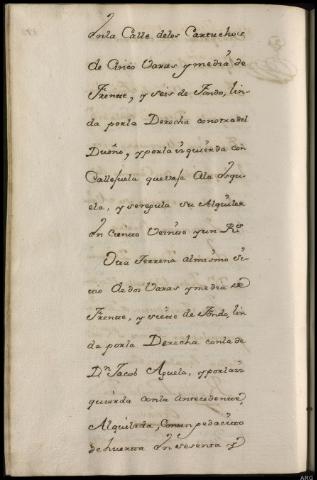 En la Calle delos Cartuchos
de Cinco Varas y media de
Frente, y seis de Fondo, lin-
da porla Derecha con otra del
Dueño, y porla izquierda con
Callejuela que vaja Ala
y seregula su Alquiler
En Ciento Veinte y un Rs
Otra Terrena almismo Si-
tio de dos Varas y media de
Frente, y siete de Fondo, lin
da porla Derecha conla de
Dn Jacob Aguela, y porla iz
quierda conla antecedente,
Alquilada, Conun pedacito
de huerta En sesenta y